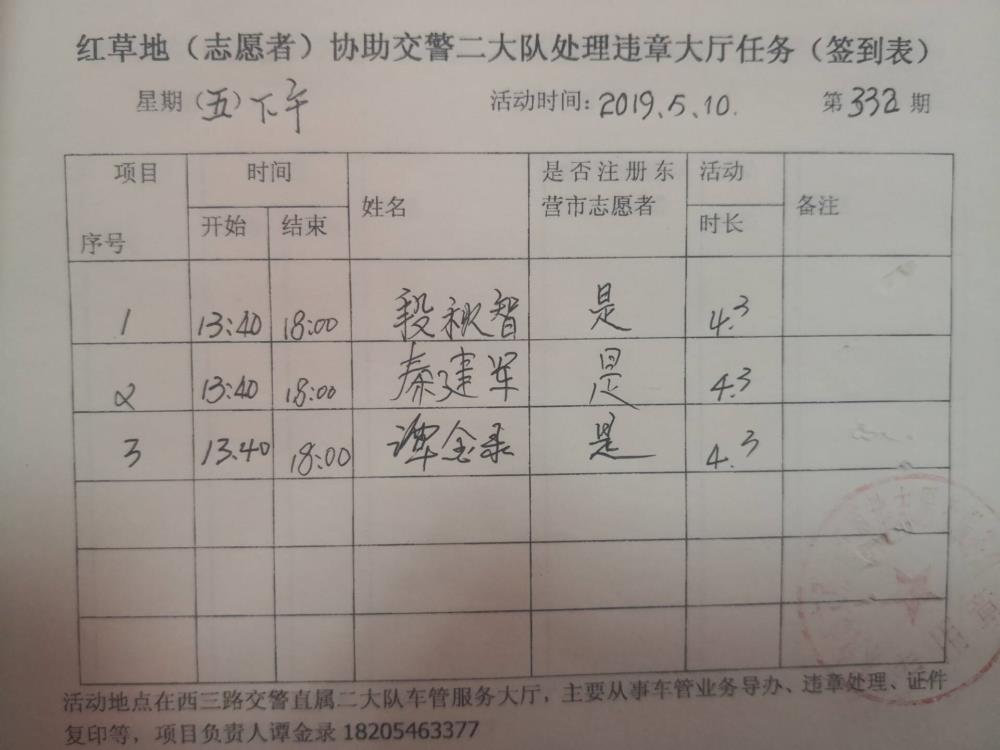 红草地（志愿者）协助交警二大队处理违章大厅任务（签到表）
星期（五）下午 活动时间：2019.5.10. 第332期
项目 时间 是否注册东 活动
姓名 营市志愿者 备注
序号 开始 结束 时长
1 13:40 18:00 段秋智 是 4.3
2 13:40 18:00 秦建军 是 4.3
3 13.40 18:00 谭金录 是 4.3
活动地点在西三路交警直属二大队车管服务大厅，主要从事车管业务导办、违章处理、证件
复印等，项目负责人谭金录 18205463377